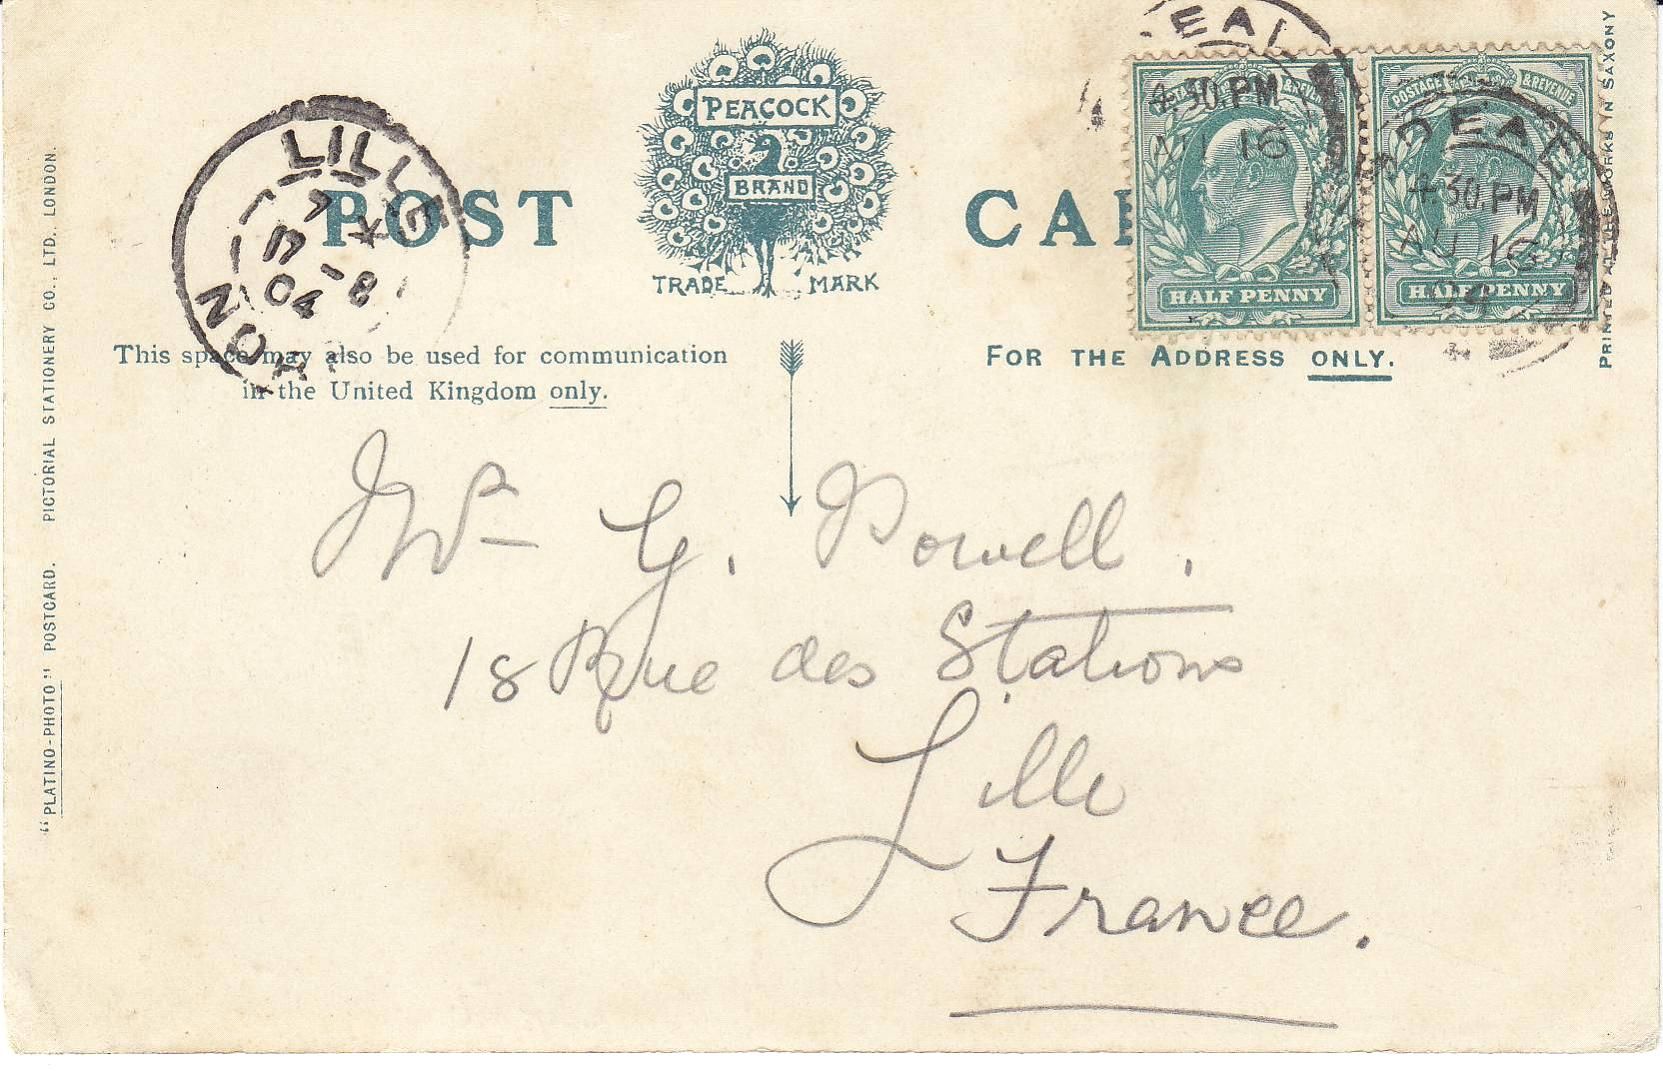 PEACOCK
BRAND
TRADE MARK
POST
This space may also be used for communication
in the United Kingdom only.
FOR THE ADDRESS ONLY.
"PLATINO-PHOTO" POSTCARD. PICTORIAL STATIONERY CO., LTD., LONDON.
LILLE
17 - 8
04
DEAL
4.30.PM
AU 16
HALF PENNY
POSTAGE & REVENUE
DEAL
4.30.PM
AU 16
HALF PENNY
IN SAXONY
Mr G. Powell.
18 Rue des Stations
Lille
France.